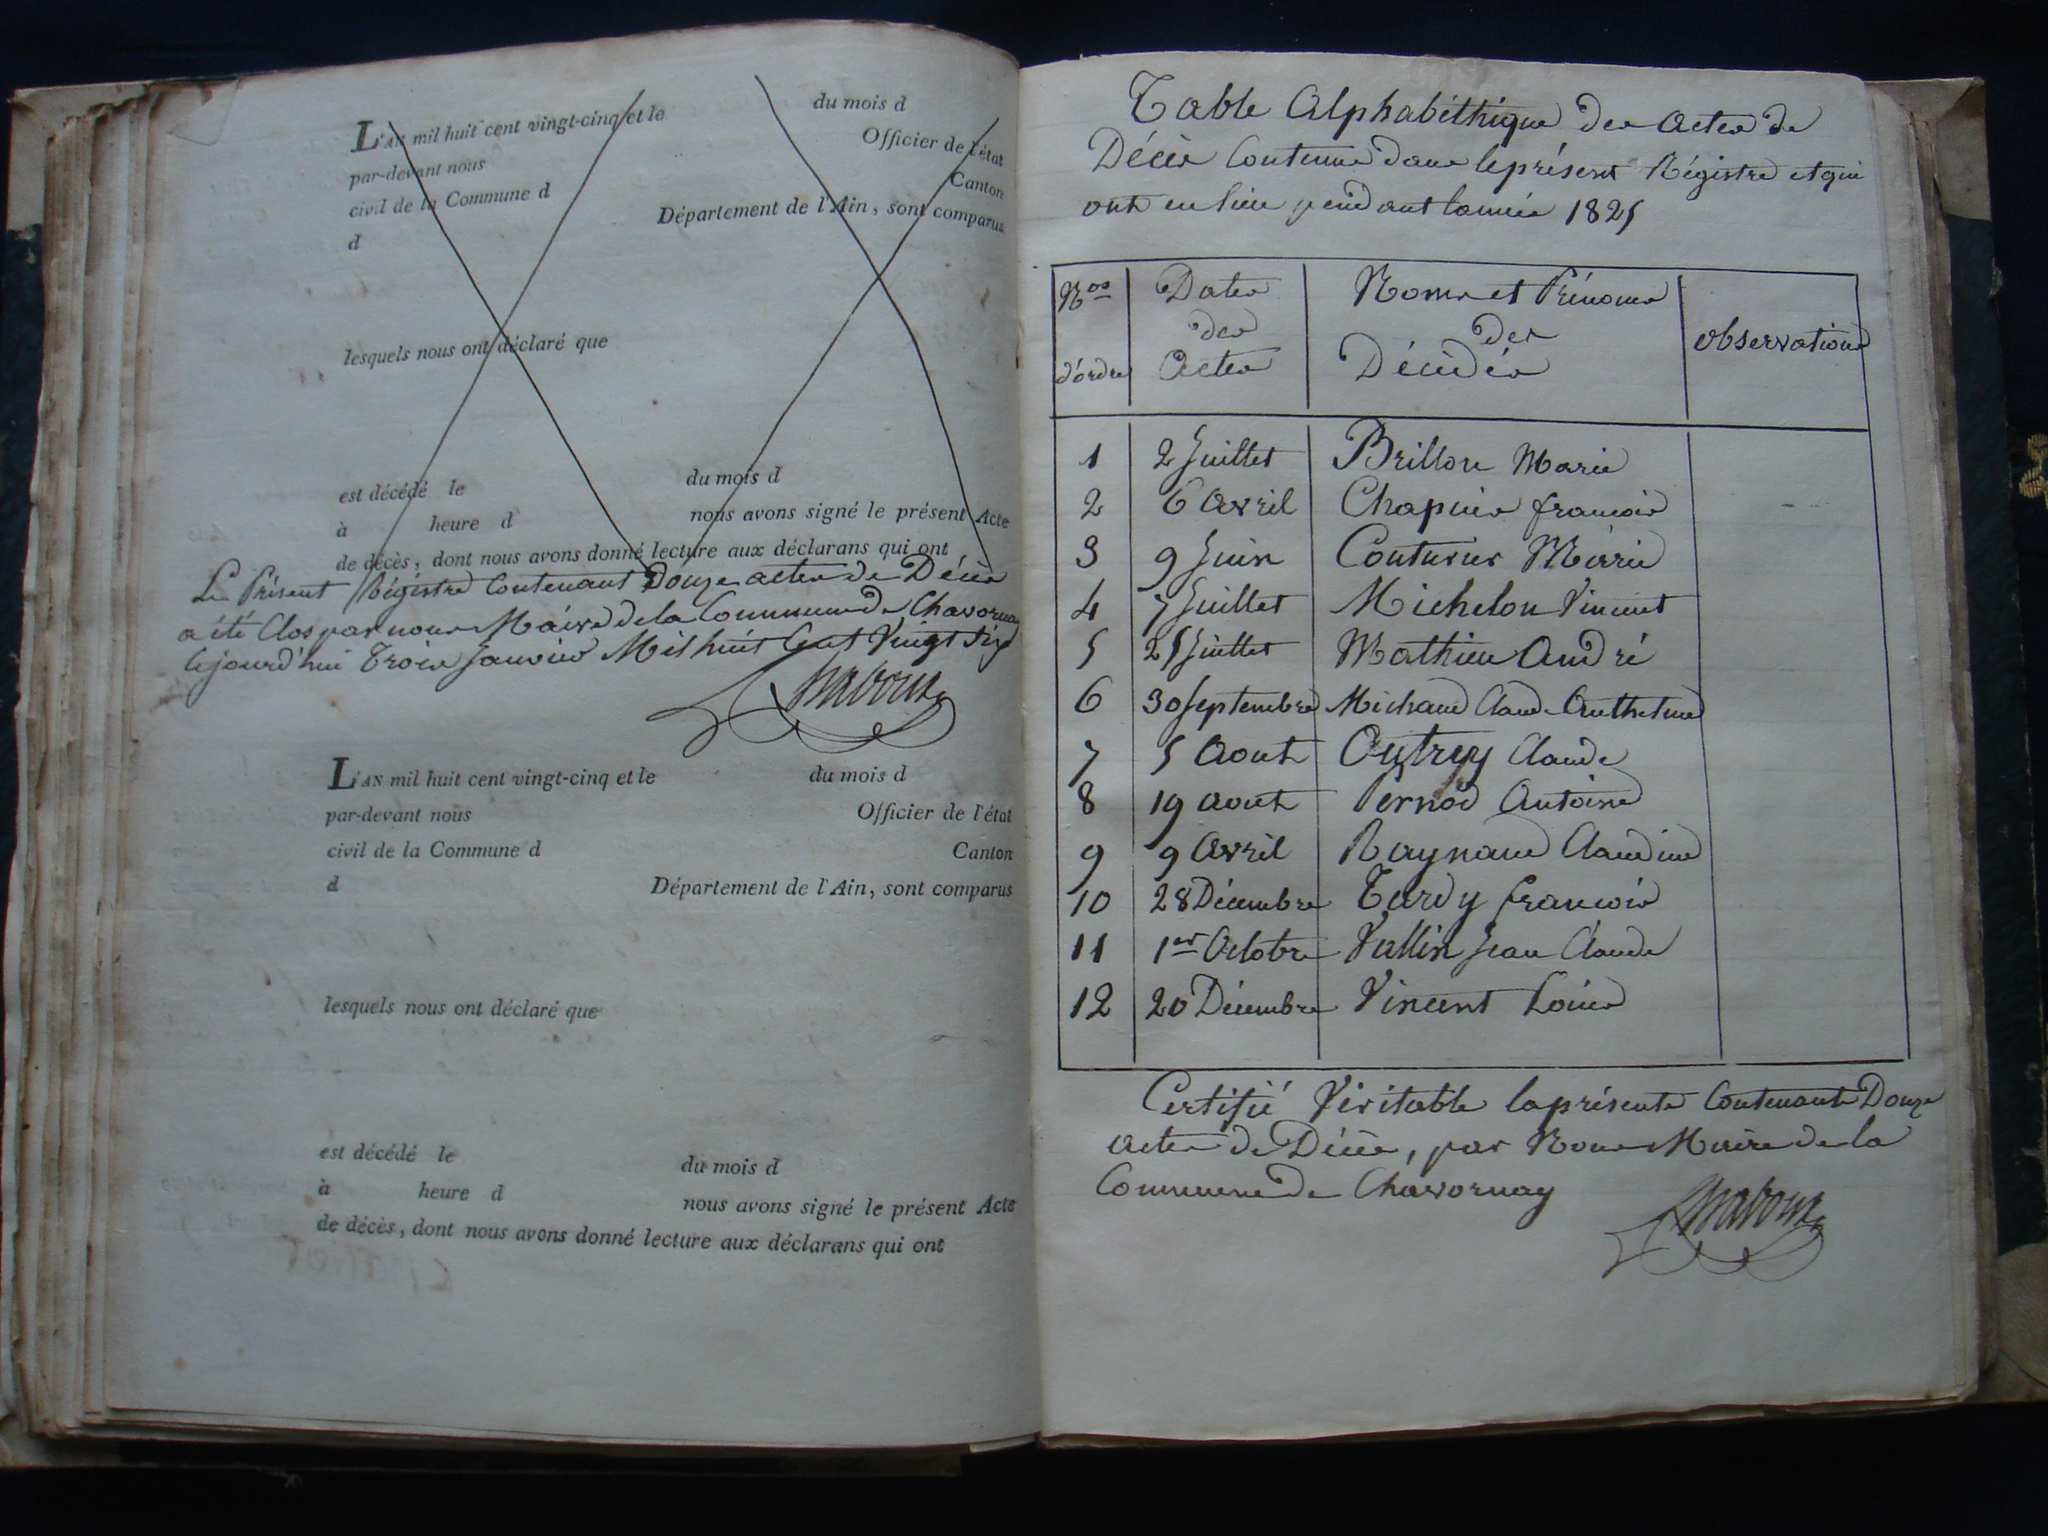 L'AN mil huit cent vingt-cinq et le du mois d
par-devant nous Officier de l'état
civil de la Commune d Canton
d Département de l'Ain, sont comparus
lesquels nous ont déclaré que
est décédé le du mois d
à heure d nous avons signé le présent Acte
de décès, dont nous avons donné lecture aux déclarans qui ont
Le Présent Régistre Contenant Douze actes de Décès
a été Clos par nous Maire de la Commune de Chavornay
cejourd'hui Trois Janvier Mil huit Cent Vingt Six
L'AN mil huit cent vingt-cinq et le du mois d
par-devant nous Officier de l'état
civil de la Commune d Canton
d Département de l'Ain, sont comparus
lesquels nous ont déclaré que
est décédé le du mois d
à heure d nous avons signé le présent Acte
de décès, dont nous avons donné lecture aux déclarans qui ont
Table Alphabéthique des Actes de
Décès Contenue dans le présent Régistre et qui
ont eu lieu pendant l'année 1825
Nos d'ordre Dates des Actes Noms et Prénoms des Décédés observations
1 2 Juillet Brillon Marie
2 6 Avril Chapuis françois
3 9 Juin Couturier Marie
4 7 Juillet Michelon Vincent
5 25 Juillet Mathieu André
6 30 Septembre Michaud Claude Anthelme
7 5 Aout Outrey Claude
8 19 Aout Pernod Antoine
9 9 Avril Raynaud Claudine
10 28 Décembre Tardy françois
11 1er Octobre Vullin Jean Claude
12 20 Décembre Vincent Louis
Certifié Véritable la présente Contenante Douze
actes de Décès, par Nous Maire de la
Commune de Chavornay